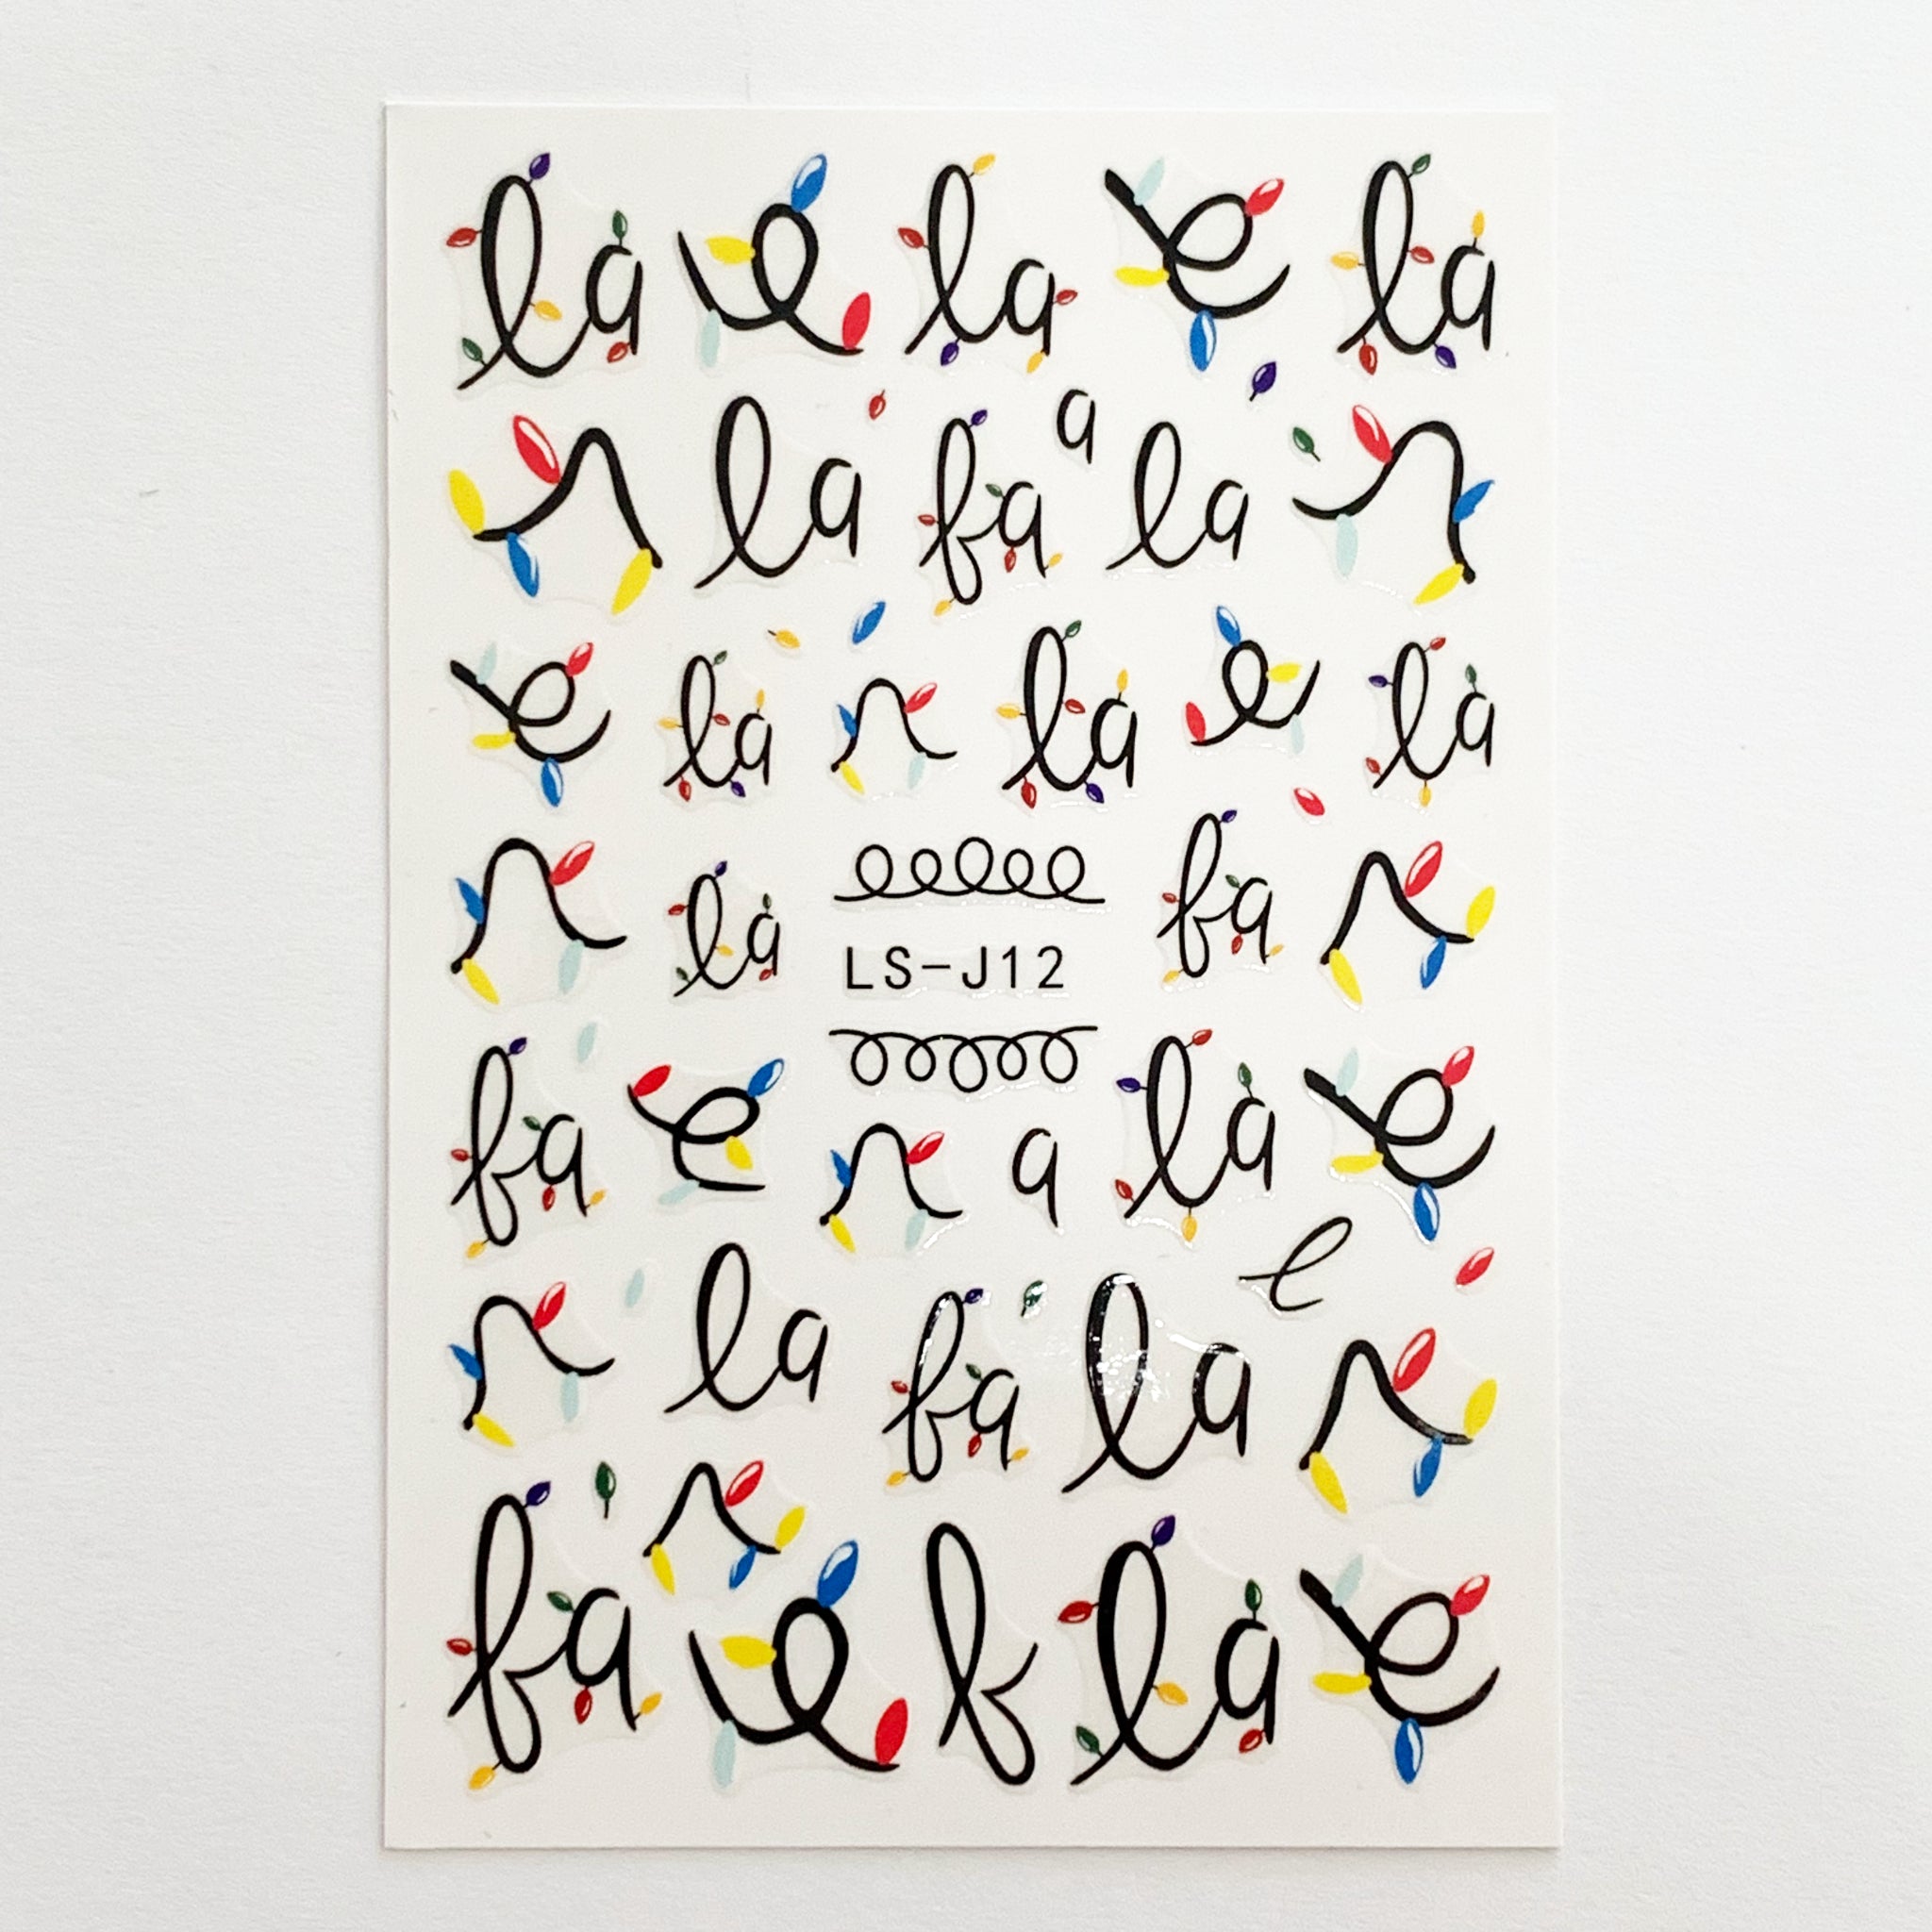 la la la
la fa a la
la la la
la LS-J12 fa
fa a la
la fa la
fa f la